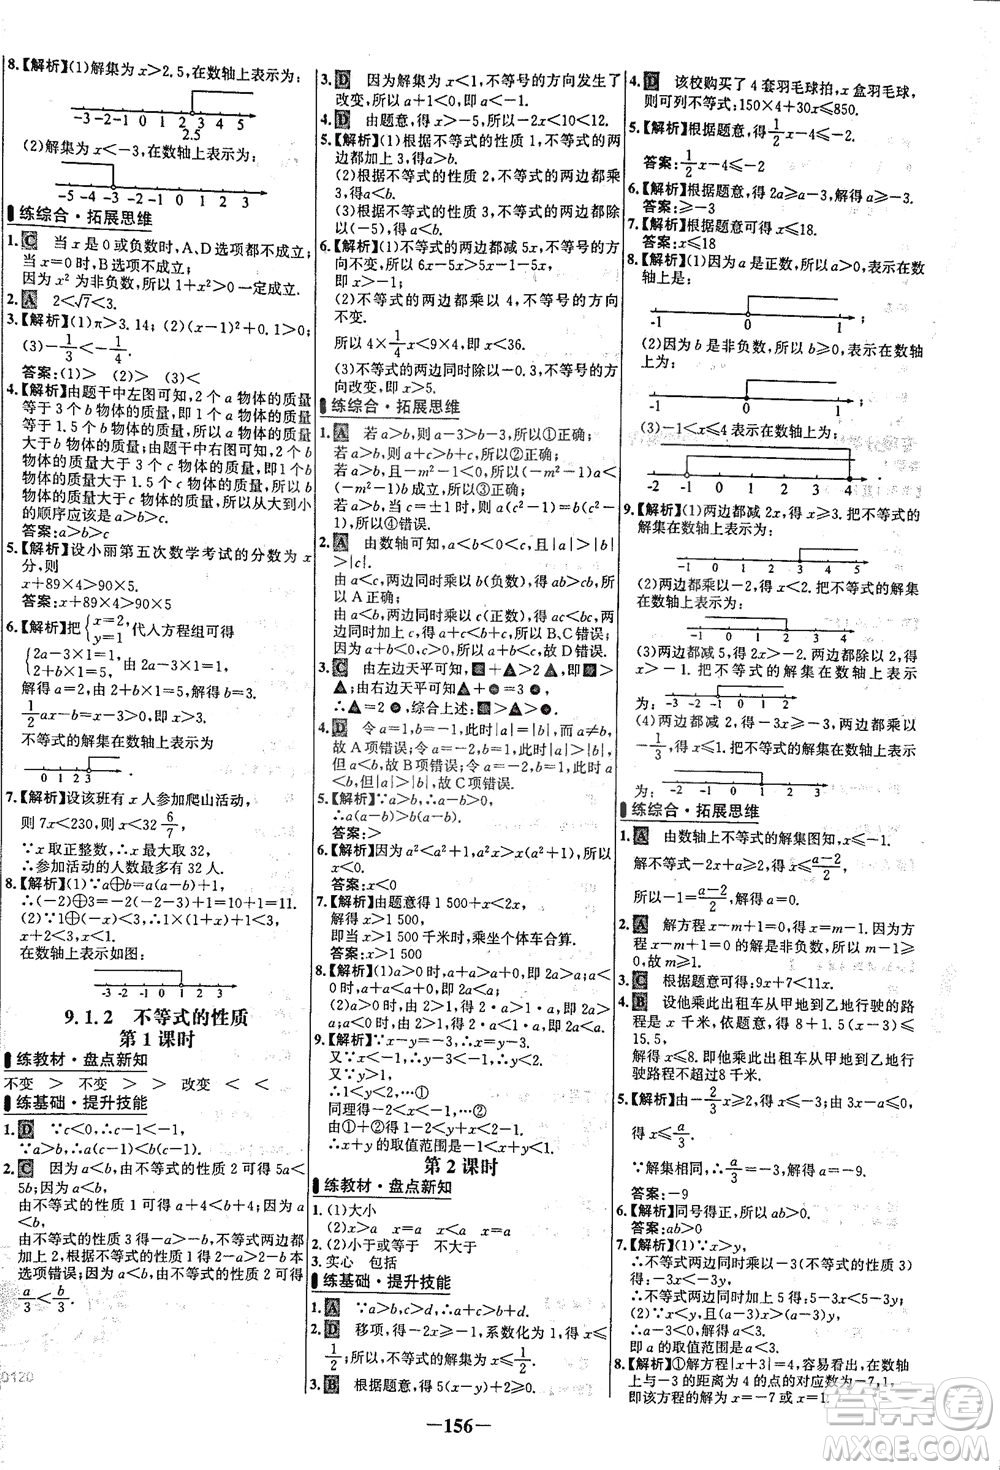 8.【解析】(1)解集为 x>2.5,在数轴上表示为:
-3 -2 -1 0 1 2 3 4 5
2.5
(2)解集为 x<-3,在数轴上表示为:
-5 -4 -3 -2 -1 0 1 2 3
练综合·拓展思维
1. C 当 x 是 0 或负数时,A、D 选项都不成立;
当 x=0 时,B 选项不成立;
因为 x² 为非负数,所以 1+x²>0 一定成立.
2. A 2<√7<3.
3.【解析】(1)π>3.14;(2)(x-1)²+0.1>0;
(3)-1/3<-1/4.
答案:(1)> (2)> (3)<
4.【解析】由题干中左图可知,2 个 a 物体的质量
等于 3 个 b 物体的质量,即 1 个 a 物体的质量
等于 1.5 个 b 物体的质量,所以 a 物体的质量
大于 b 物体的质量;由题干中右图可知,2 个 b
物体的质量大于 3 个 c 物体的质量,即 1 个 b
物体的质量大于 1.5 个 c 物体的质量,所以 b
物体的质量大于 c 物体的质量,所以从大到小
的顺序应该是 a>b>c.
答案:a>b>c
5.【解析】设小丽第五次数学考试的分数为 x
分,则
x+89×4>90×5.
答案:x+89×4>90×5
6.【解析】把{x=2, y=1,代入方程组可得
{2a-3×1=1, 2+b×1=5,由 2a-3×1=1,
解得 a=2,由 2+b×1=5,解得 b=3,
1/2ax-b=x-3>0,解得 x>3,
不等式的解集在数轴上表示为
-1 0 1 2 3
7.【解析】设该班有 x 人参加爬山活动,
则 7x<230,则 x<32 6/7,
∵x 取正整数,∴x 最大取 32,
∴参加活动的人数最多有 32 人.
8.【解析】(1)∵a⊕b=a(a-b)+1,
∴(-2)⊕3=-2(-2-3)+1=10+1=11.
(2)∵3⊕x<13,∴3(3-x)+1<13,
去括号,得 9-3x+1<13,解得 x>-1.
在数轴上表示如图:
-3 -2 -1 0 1 2 3
9.1.2 不等式的性质
第 1 课时
练教材·盘点新知
不变 > 不变 > > 改变 < <
练基础·提升技能
1. D ∵c<0,∴c-1<-1,
∵a>b,∴a(c-1)<b(c-1).
2. C 因为 a<b,由不等式的性质 2 可得 5a<
5b;因为 a<b,
由不等式的性质 1 可得 a+4<b+4;因为 a
<b,
由不等式的性质 3 得-a>-b,不等式两边都
加上 2,根据不等式的性质 1 得 2-a>2-b 本
选项错误;因为 a<b,由不等式的性质 2 可得
a/3<b/3.
3. D 因为解集为 x<1,不等号的方向发生了
改变,所以 a+1<0,即 a<-1.
4. D 由题意,得 x>-5,所以-2x<10<12.
5.【解析】(1)根据不等式的性质 1,不等式的两
边都加上 3,所以 a<b.
(2)根据不等式的性质 2,不等式的两边都乘以
6,得 a<b.
(3)根据不等式的性质 3,不等式的两边都除
以(-5),得 a<b.
6.【解析】(1)不等式的两边都减 5x,不等号的方
向不变,所以 6x-5x>5x-5x-1,
即 x>-1.
(2)不等式的两边都乘以 4,不等号的方向
不变.
所以 4×1/4x<9×4,即 x<36.
(3)不等式的两边同时除以-0.3,不等号的方
向改变,
即 x>5.
练综合·拓展思维
1. A 若 a>b,则 a-3>b-3,所以①正确;
若 a>b,则 a+c>b+c,所以②正确;
若 a>b,因为-m²-1<0,所以(-m²-1)a<
(-m²-1)b 成立,所以③正确;
若 a>b,当 c=±1 时,(c²-1)a=(c²-1)b=
0,所以④错误.
2. A 由数轴可知,a<b<0<c,且|a|>|b|
>|c|.
由 a<c,两边同时乘以 b(负数),得 ab>bc,所
以 A 正确;
由 a<b,两边同时乘以 c(正数),得 ac<bc;两
边同时加上 c,得 a+c<b+c,所以 B、C 错误;
因为 a<b<0,所以 a+b<0<c,故 D 错误.
3. C 由左边天平可知,■+▲>2▲,即■>
▲;由右边天平可知▲+●=3●,所
以▲=2●,综合上述:■>▲>●.
4. D 令 a=1,b=-1,此时|a|=|b|,而 a≠b,
故 A 项错误;令 a=-1,b=0,此时|a|>|b|,
故 B 项错误;令 a=-2,b=-1,
此时 a<b,而|a|>|b|,故 C 项错误.
5.【解析】∵a>b,∴a-b>0,
∴a(a-b)>b(a-b).
答案:>
6.【解析】因为 a²<a²+1,a²x>(a²+1)x,所以
x<0.
答案:x<0
7.【解析】由题意得 1 500+x<2x,
解得 x>1 500,
即当 x>1 500 千米时,乘坐个体车合算.
答案:x>1 500
8.【解析】(1)a>0,a+a>a+0,即 2a>a;a<
0,a+a<a+0,即 2a<a.
(2)a>0,由 2>1 得 2·a>1·a,即 2a>
a;a<0,由 2>1 得 2·a<1·a,即 2a<a.
9.【解析】∵x-y=-3,∴x=y-3.
又∵x<-1,∴y-3<-1.∴y<2.
又∵y>1,
∴1<y<2,…①
同理得-2<x<-1,…②
由①+②得-2+1<y+x<-1+2.
∴x+y 的取值范围是-1<x+y<1.
第 2 课时
练教材·盘点新知
1. (1)大小
(2)x>a x<a x≥a x≤a
2. (2)小于或等于 不大于
3. 实心 包括
练基础·提升技能
1. A ∵a>b,c>d,∴a+c>b+d.
2. D 移项,得-2x≥-1,系数化为 1,得 x≤
1/2;所以,不等式的解集为 x≤1/2.
3. B 根据题意,得 4(5-2)x+2≥0.
4. D 该校购买了 4 套羽毛球拍,x 盒羽毛球,
则可列不等式:150×4+30x≤850.
5.【解析】根据题意,得1/2x-4≤-2.
答案:1/2x-4≤-2
6.【解析】根据题意,得 2a≥a-3,解得 a≥-3.
答案:≥-3
7.【解析】根据题意可得 x≤18.
答案:x≤18
8.【解析】(1)因为 a 是正数,所以 a>0,表示在
数轴上是:
-1 0 1 ;
(2)因为 b 是非负数,所以 b≥0,表示在数轴
上为:
-1 0 1 ;
(3)-1<x≤4 表示在数轴上为:
-2 -1 0 1 2 3 4 .
9.【解析】(1)两边都减 2x,得 x≥3.把不等式的
解集在数轴上表示为:
-1 0 1 2 3 4 5
(2)两边都乘以-2,得 x<2.把不等式的解集
在数轴上表示为:
-1 0 1 2 3 4
(3)两边都减 5x,得 2x>-2,两边都除以 2,得
x>-1.把不等式的解集在数轴上表示
为:-2 -1 0 1 2
(4)两边都减 2,得-3x≥-3,两边都乘
-1/3,得 x≤1.把不等式的解集在数轴上表示
为:-2 -1 0 1 2
练综合·拓展思维
1. A 由数轴上不等式的解集图知,x≤-1.
解不等式-2x+a≥2,得 x≤(a-2)/2,
所以-1=(a-2)/2,解得 a=0.
2. A 解方程 x-m+1=0,得 x=m-1.因为方
程 x-m+1=0 的解是非负数,所以 m-1≥
0,m≥1.
3. C 根据题意可得:9x+7<11x.
4. B 设他乘此出租车从甲地到乙地行驶的路
程是 x 千米,依题意,得 8+1.5(x-3)≤
15.5,
解得 x≤8.即他乘此出租车从甲地到乙地行
驶路程不超过8 千米.
5.【解析】由-2/3x>2,得 x<-3,由 a<0,
得 x<a/3.
∵解集相同,∴a/3=-3,解得 a=-9.
答案:-9
6.【解析】同号得正,所以 ab>0.
答案:ab>0
7.【解析】(1)∵x>y,
∴不等式两边同时乘以-3(不等式的性质3)
得-3x<-3y,∴5-3x<5-3y.
(2)∵x<y,且(a-3)x>(a-3)y,
∴a-3<0,解得 a<3.
即 a 的取值范围是 a<3.
8.【解析】①解方程|x+3|=4,容易看出,在数轴
上与-3 的距离为 4 的点的对应数为-7,1,
即该方程的解为 x=-7 或 x=1.
0120
—156—
答案圈
MXQE.COM